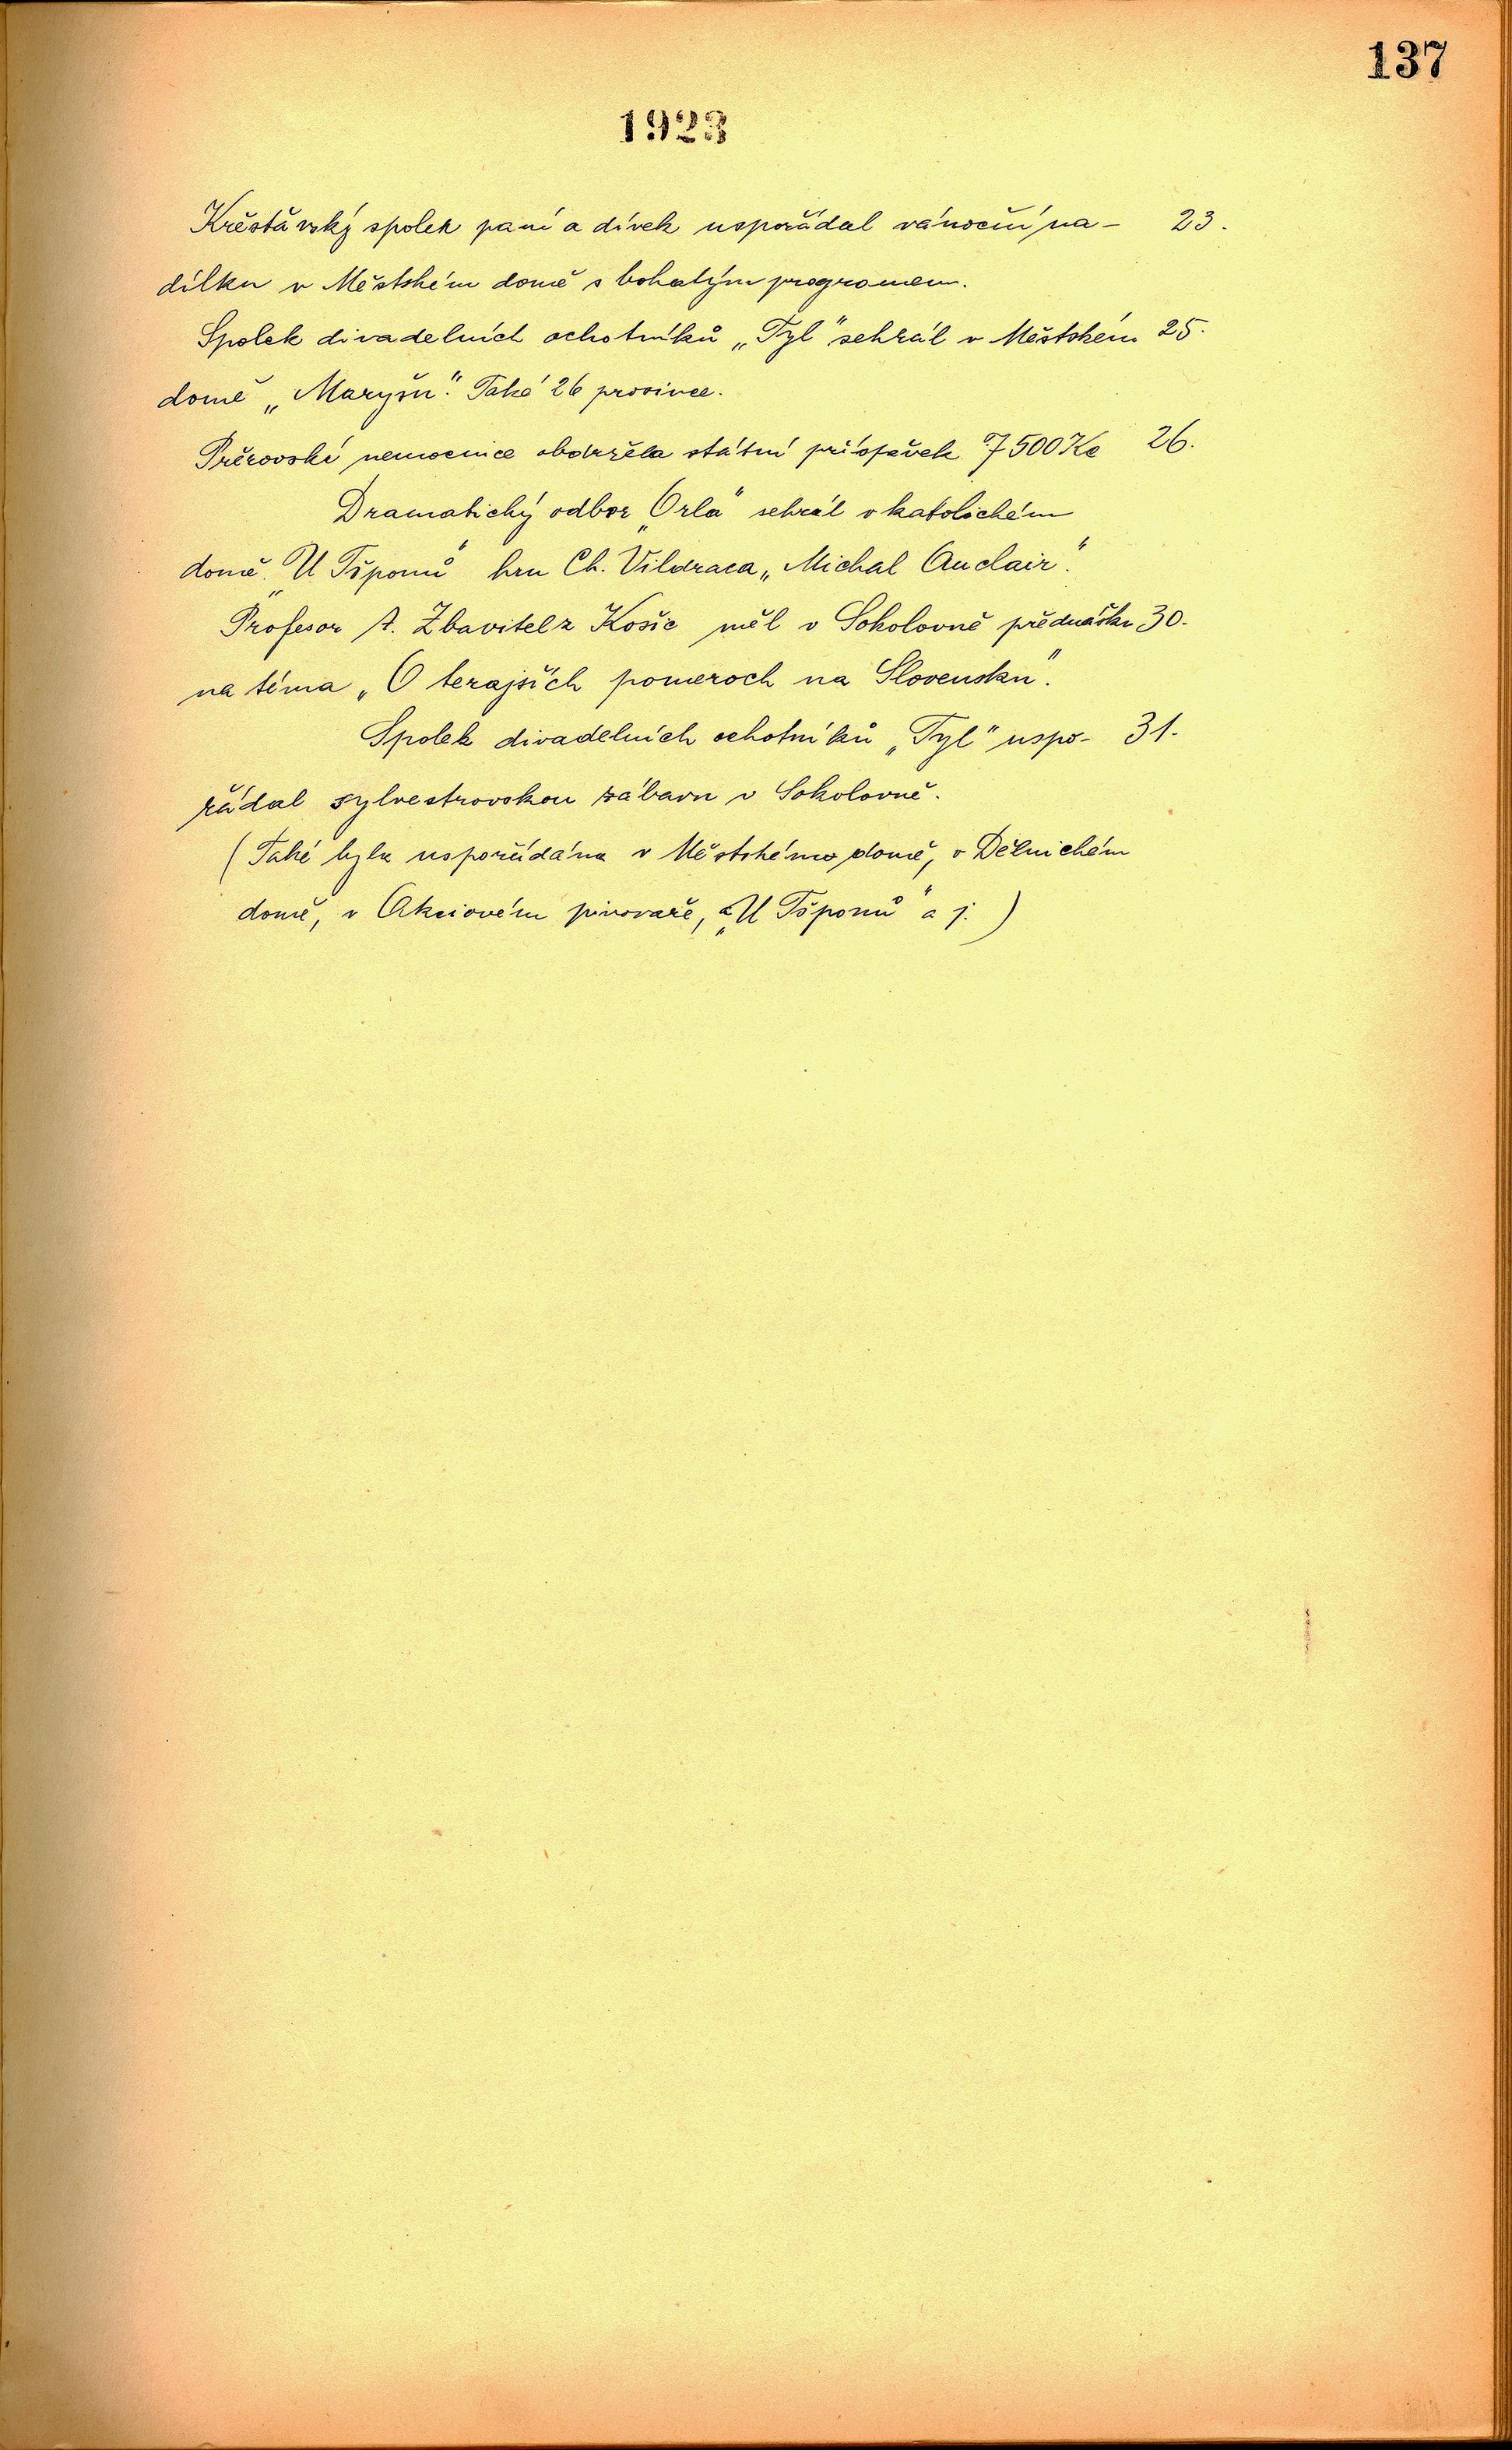 137
1923
Křesťanský spolek paní a dívek uspořádal vánoční na- 23.
dílku v Městském domě s bohatým programem.
Spolek divadelních ochotníků „Tyl" sehrál v Městském 25.
domě „Maryšu". Také 26 prosince.
Přerovská nemocnice obdržela státní příspěvek 7500 Kč 26.
Dramatický odbor „Orla" sehrál v katolickém
domě „U Tšponů" hru Ch. Vildraca „Michal Auclair".
Profesor A. Zbavitel z Košic měl v Sokolovně přednášku 30.
na téma „O terajších pomeroch na Slovensku".
Spolek divadelních ochotníků „Tyl" uspo- 31.
řádal sylvestrovskou zábavu v Sokolovně.
(Také byla uspořádána v Městském domě, v Dělnickém
domě, v Akciovém pivovaře, „U Tšponů" a j.)